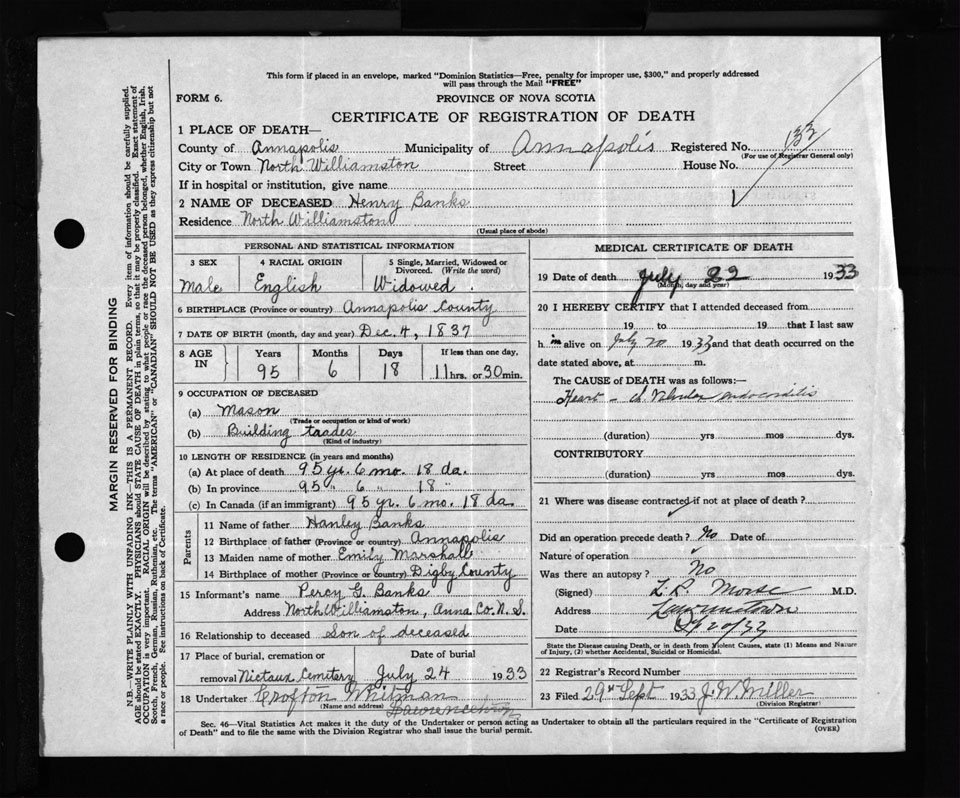 This form if placed in an envelope, marked "Dominion Statistics—Free, penalty for improper use, $300," and properly addressed
will pass through the Mail "FREE"
FORM 6.
PROVINCE OF NOVA SCOTIA
CERTIFICATE OF REGISTRATION OF DEATH
1 PLACE OF DEATH—
County of Annapolis Municipality of Annapolis Registered No. 133
(For use of Registrar General only)
City or Town North Williamston Street House No.
If in hospital or institution, give name
2 NAME OF DECEASED Henry Banks
Residence North Williamston
(Usual place of abode)
PERSONAL AND STATISTICAL INFORMATION
3 SEX
Male
4 RACIAL ORIGIN
English
5 Single, Married, Widowed or
Divorced. (Write the word)
Widowed.
6 BIRTHPLACE (Province or country) Annapolis County
7 DATE OF BIRTH (month, day and year) Dec. 4, 1837
8 AGE IN
Years Months Days If less than one day.
95 6 18 11 hrs. or 30 min.
9 OCCUPATION OF DECEASED
(a) Mason
(Trade or occupation or kind of work)
(b) Building taades
(Kind of industry)
10 LENGTH OF RESIDENCE (in years and months)
(a) At place of death 95 yr. 6 mo. 18 da.
(b) In province 95 " 6 " 18 "
(c) In Canada (if an immigrant) 95 yr. 6 mo. 18 da.
Parents
11 Name of father Hanley Banks
12 Birthplace of father (Province or country) Annapolis
13 Maiden name of mother Emily Marshall
14 Birthplace of mother (Province or country) Digby County
15 Informant's name Percy G. Banks
Address North Williamston, Anna. Co. N. S.
16 Relationship to deceased Son of deceased
17 Place of burial, cremation or Date of burial
removal Nictaux Cemetary July 24 1933
18 Undertaker Crofton Whitman
(Name and address) Lawrencetown
MEDICAL CERTIFICATE OF DEATH
19 Date of death July 22 1933
(Month, day and year)
20 I HEREBY CERTIFY that I attended deceased from
19 to 19 that I last saw
h im alive on July 20 1933 and that death occurred on the
date stated above, at m.
The CAUSE of DEATH was as follows:—
Heart – endocarditis
(duration) yrs mos dys.
CONTRIBUTORY
(duration) yrs mos dys.
21 Where was disease contracted if not at place of death?
Did an operation precede death? No Date of
Nature of operation
Was there an autopsy? No
(Signed) L. R. Morse M.D.
Address Lawrencetown
Date
State the Disease causing Death, or in death from Violent Causes, state (1) Means and Nature
of Injury, (2) whether Accidental, Suicidal or Homicidal.
22 Registrar's Record Number
23 Filed 29th Sept 1933 J. W. Miller
(Division Registrar)
Sec. 46—Vital Statistics Act makes it the duty of the Undertaker or person acting as Undertaker to obtain all the particulars required in the "Certificate of Registration
of Death" and to file the same with the Division Registrar who shall issue the burial permit.
(OVER)
MARGIN RESERVED FOR BINDING
N.B.—WRITE PLAINLY WITH UNFADING INK—THIS IS A PERMANENT RECORD. Every item of information should be carefully supplied.
AGE should be stated EXACTLY. PHYSICIANS should STATE CAUSE OF DEATH in plain terms, so that it may be properly classified. Exact statement of
OCCUPATION is very important. RACIAL ORIGIN will be described by stating to what people or race the deceased person belonged, whether English, Irish,
Scotch, French, German, Russian, Ruthenian, etc. The terms "AMERICAN" or "CANADIAN" SHOULD NOT BE USED as they express citizenship but not
a race or people. See instructions on back of Certificate.